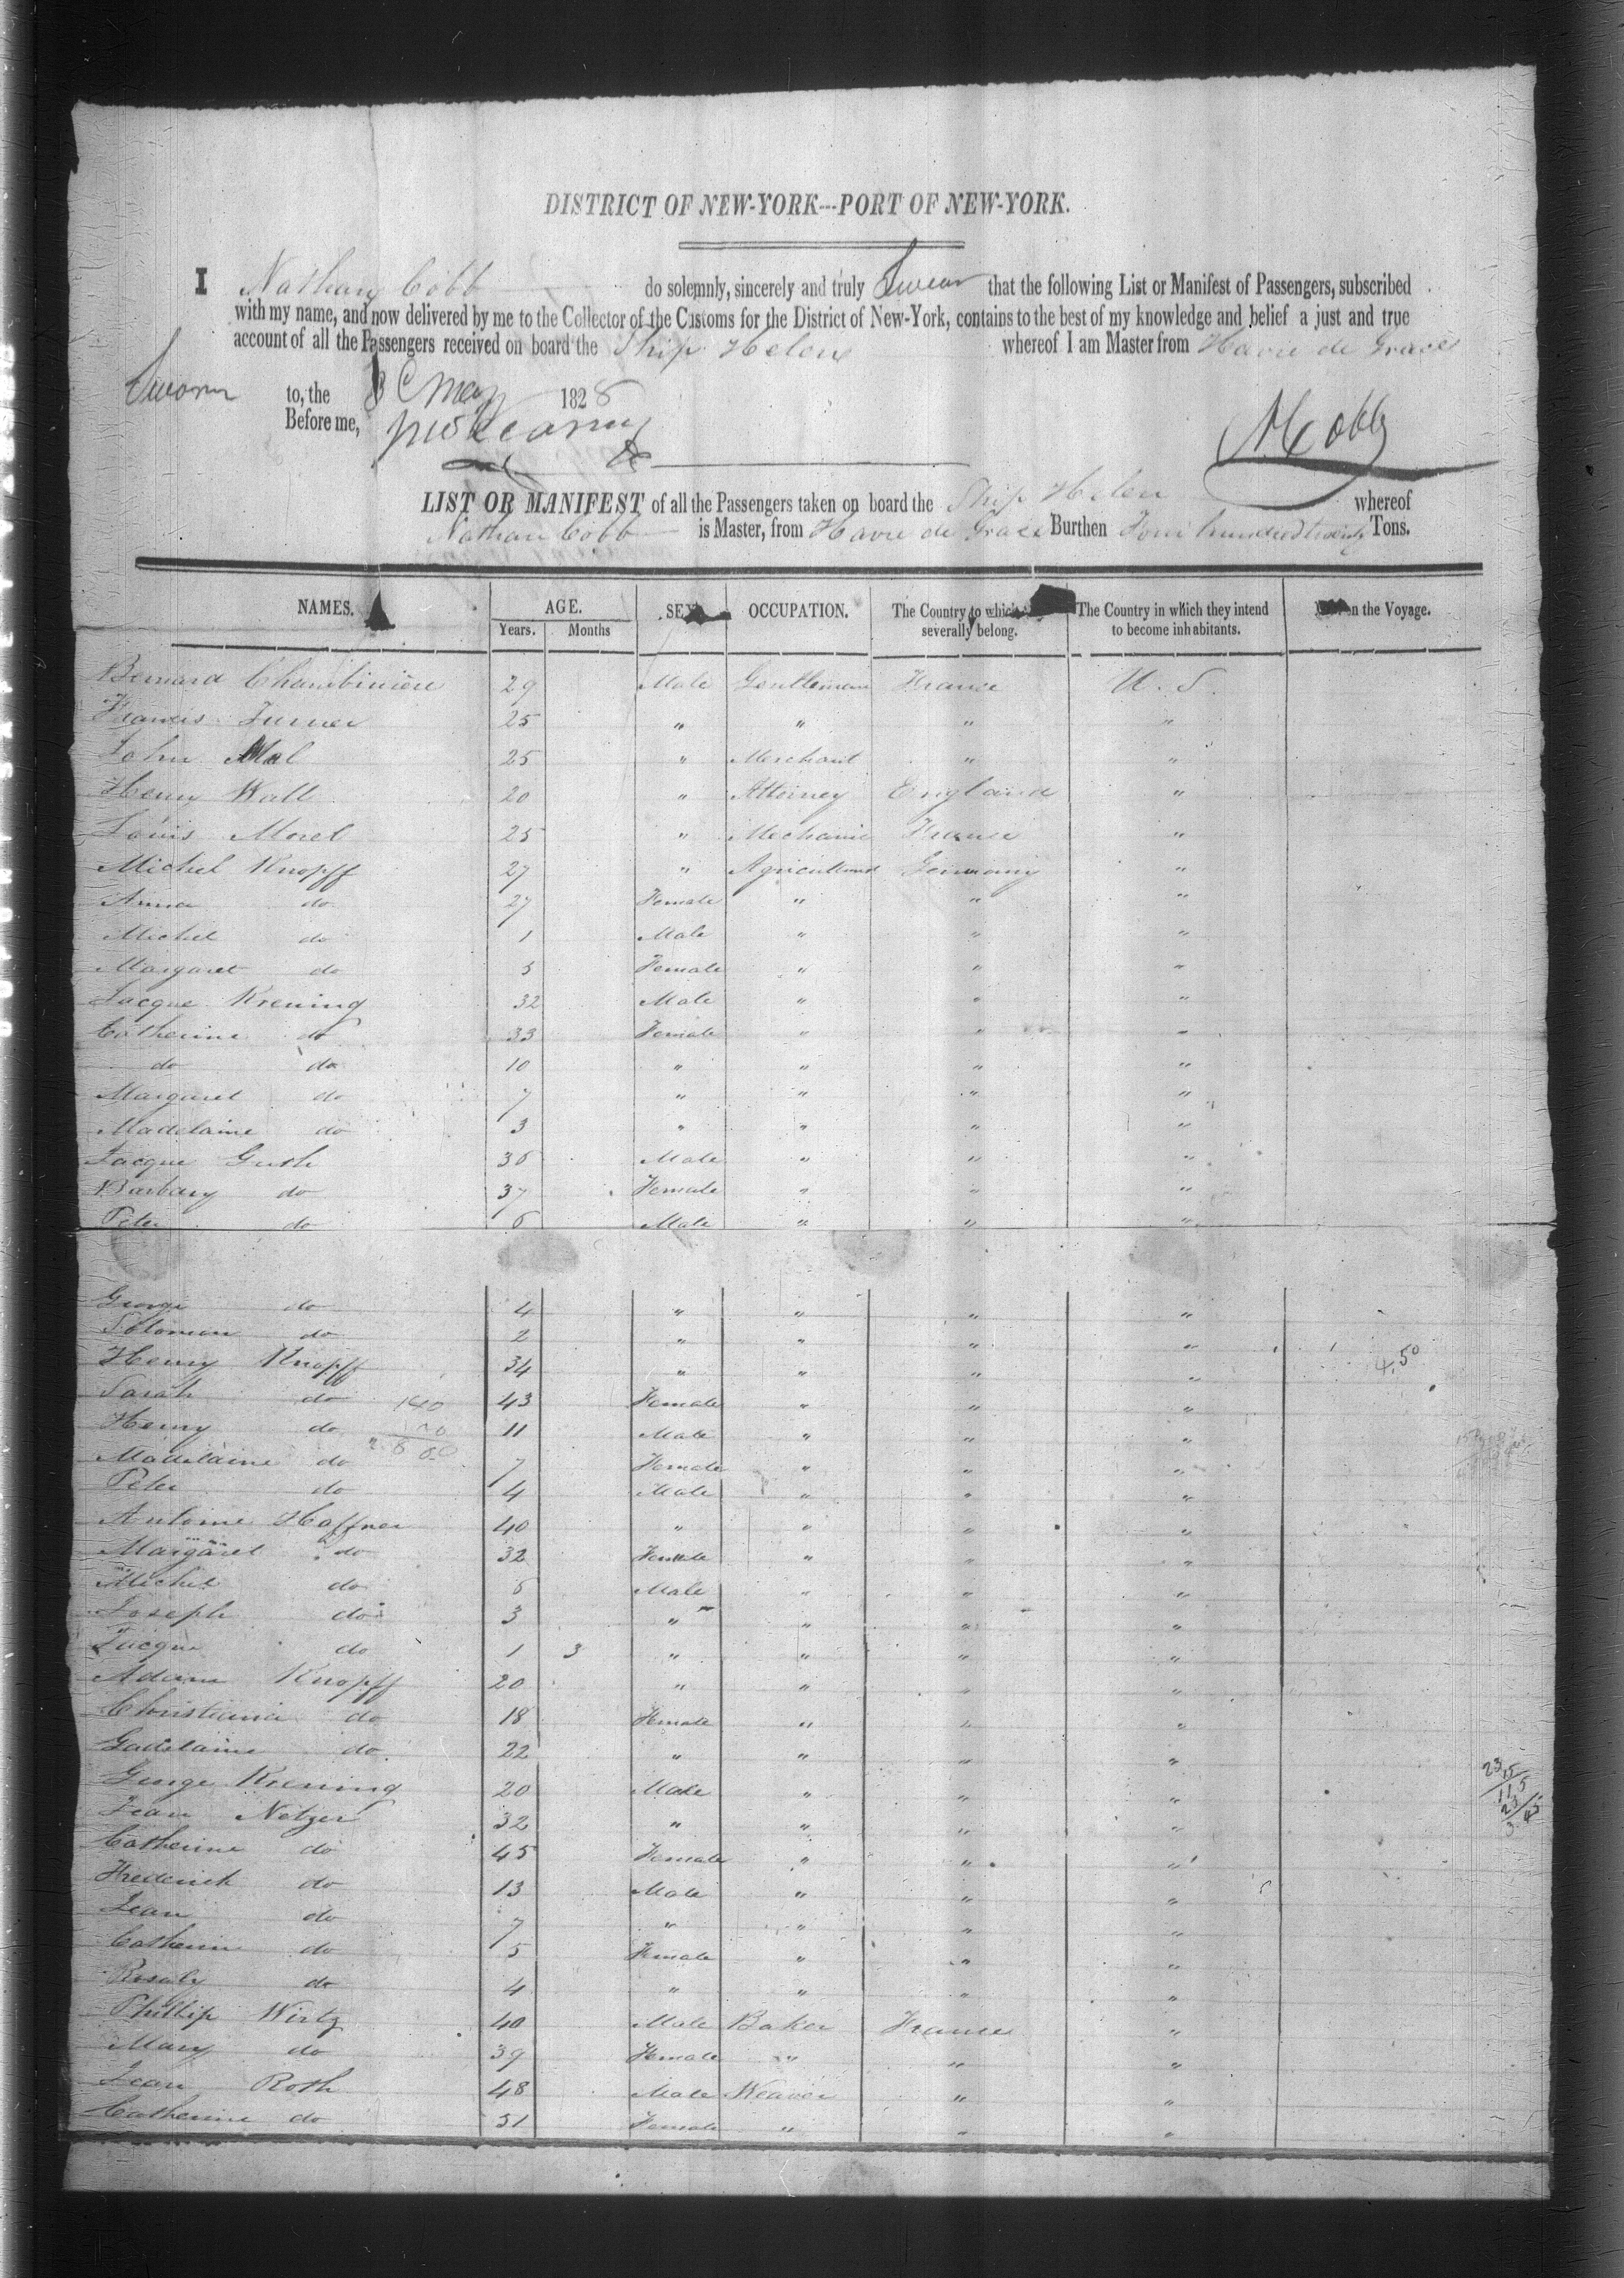 DISTRICT OF NEW-YORK---PORT OF NEW-YORK.
I Nathan Cobb do solemnly, sincerely and truly Swear that the following List or Manifest of Passengers, subscribed
with my name, and now delivered by me to the Collector of the Customs for the District of New-York, contains to the best of my knowledge and belief a just and true
account of all the Passengers received on board the Ship Helen whereof I am Master from Havre de Grace
Sworn to, the 8 May 1828
Before me,
N Cobb
LIST OR MANIFEST of all the Passengers taken on board the Ship Helen whereof
Nathan Cobb is Master, from Havre de Grace Burthen Four hundred twenty Tons.
NAMES. AGE. SEX OCCUPATION. The Country to which severally belong. The Country in which they intend to become inhabitants. on the Voyage.
Years. Months
Bernard 29 Male Gentleman France U. S.
Francis Turner 25 " " " "
John Mal 25 " Merchant " "
Henry Wall 20 " Attorney England "
Louis Morel 25 " Mechanic France "
Michel Knopff 27 " Germany "
Anna do 27 Female " " "
Michel do 1 Male " " "
Margaret do 3 Female " " "
Jacque Krening 32 Male " " "
Catherine do 33 Female " " "
do do 10 " " " "
Margaret do 7 " " " "
Madelaine do 3 " " " "
Jacque Guth 36 Male " " "
Barbary do 37 Female " " "
Peter do 6 Male " " "
George do 4 " " " "
Solomon do 2 " " " "
Henry Knopff 34 " " " " 4,50
Sarah do 43 Female " " "
Henry do 11 Male " " "
Madelaine do 7 Female " " "
Peter do 4 Male " " "
Antoine Haffner 40 " " " "
Margaret do 32 Female " " "
Michel do 6 Male " " "
Joseph do 3 " " " "
Jacque do 1 3 " " " "
Adam Knopff 20 " " " "
Christiania do 18 Female " " "
Gadelaine do 22 " " " "
George Krening 20 Male " " "
Jean Netzer 32 " " " "
Catherine do 45 Female " " "
Frederick do 13 Male " " "
Jean do 7 " " " "
Catherin do 5 Female " " "
Rosaly do 4 " " " "
Phillip Wirtz 40 Male Baker France "
Mary do 39 Female " " "
Jean Roth 48 Male Weaver " "
Catherine do 51 Female " " "